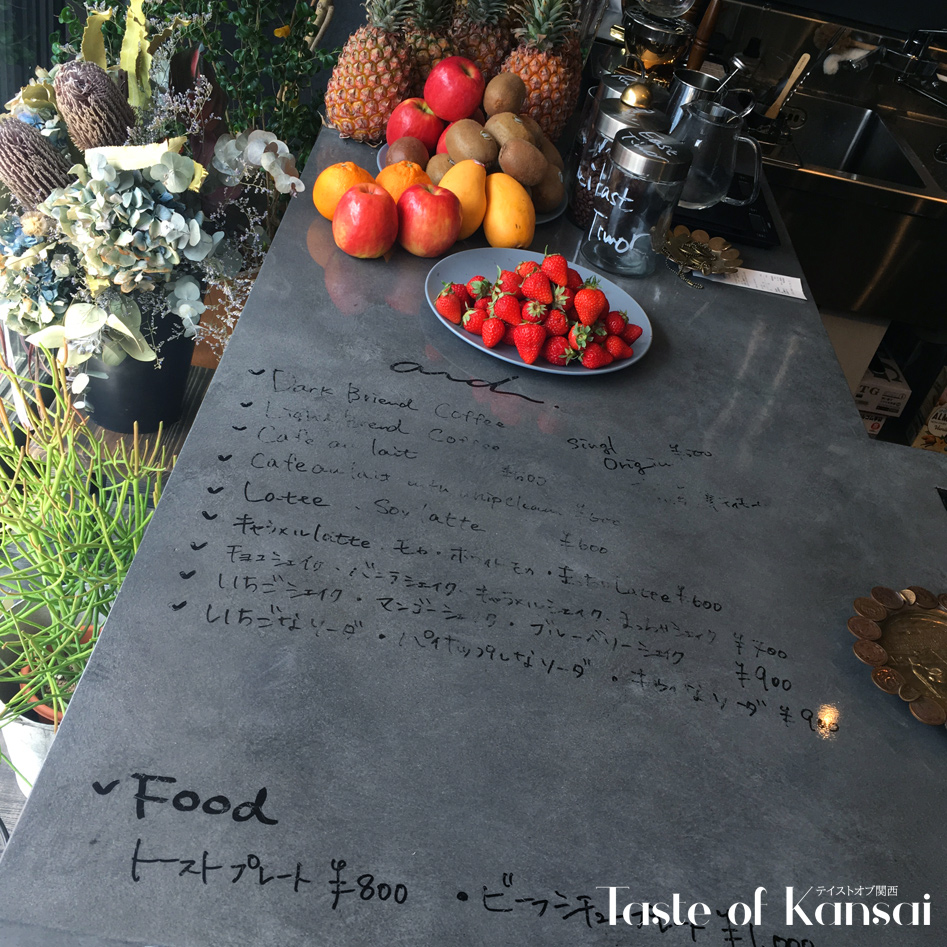 East
Timor
and.
Dark Briend Coffee
Light Brend Coffee
Singl ¥500
Origin
Cafe au lait ¥500
Cafe au lait ¥600
Latee . Soy latte ¥600
キャラメルlatte . モカ・ホワイトモカ・まっちゃLatee ¥600
チョコシェイク、バニラシェイク、キャラメルシェイク、まっちゃシェイク ¥700
いちごシェイク・マンゴーシェイク・ブルーベリーシェイク ¥900
いちごなソーダ・パイナップルなソーダ・キウイなソーダ ¥900
Food
トーストプレート ¥800 ・ビーフシチュープレート ¥1,000
テイストオブ関西
Taste of Kansai